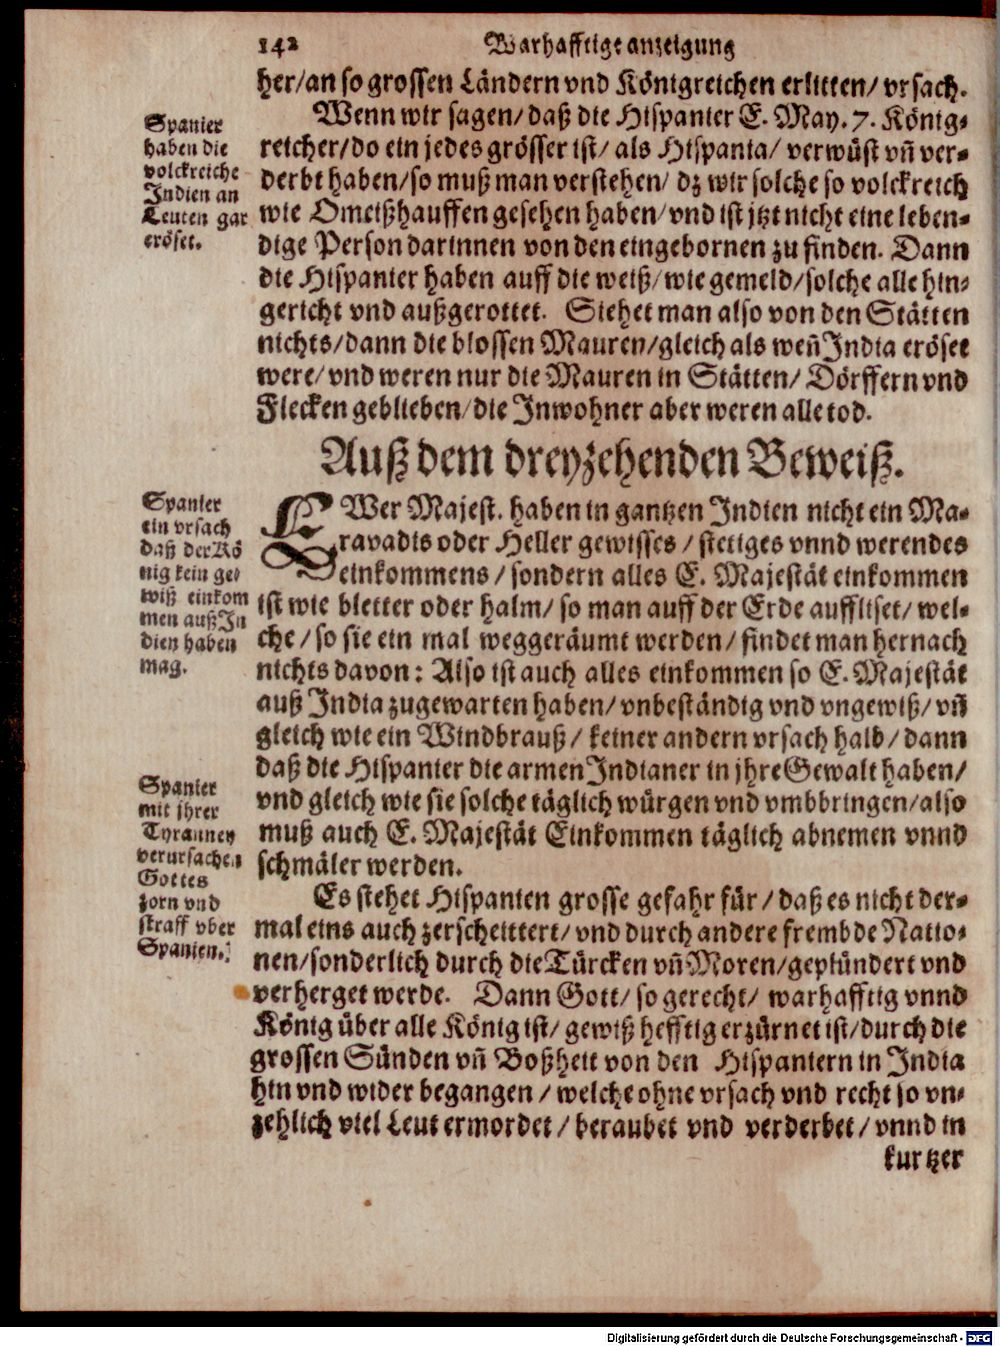 142 Warhafftige anzeigung
her/an so grossen Ländern vnd Königreichen erlitten/ vrsach.
Spanier
haben die
volckreiche
Indien an
Leuten gar
eröset.
Wenn wir sagen/ daß die Hispanier E. May. 7. König-
reicher/do ein jedes grösser ist/ als Hispania/ verwüst vñ ver-
derbt haben/so muß man verstehen/ dz wir solche so volckreich
wie Omeißhauffen gesehen haben/ vnd ist jtzt nicht eine leben-
dige Person darinnen von den eingebornen zu finden. Dann
die Hispanier haben auff die weiß/ wie gemeld/solche alle hin-
gericht vnd außgerottet. Siehet man also von den Stätten
nichts/dann die blossen Mauren/gleich als weñ India eröset
were/ vnd weren nur die Mauren in Stätten/ Dörffern vnd
Flecken geblieben/die Inwohner aber weren alle tod.
Auß dem dreyzehenden Beweiß.
Spanier
ein vrsach
daß der Kö
nig kein ge-
wiß einkom
men auß In
dien haben
mag.
EWer Majest. haben in gantzen Indien nicht ein Ma-
ravadis oder Heller gewisses / stetiges vnnd werendes
einkommens / sondern alles E. Majestät einkommen
ist wie bletter oder halm/ so man auff der Erde auffliset/ wel-
che / so sie ein mal weggeräumt werden/ findet man hernach
nichts davon: Also ist auch alles einkommen so E. Majestät
auß India zugewarten haben/ vnbeständig vnd vngewiß/ vñ
gleich wie ein Windbrauß / keiner andern vrsach halb/ dann
daß die Hispanier die armen Indianer in jhre Gewalt haben/
vnd gleich wie sie solche täglich würgen vnd vmbbringen/also
muß auch E. Majestät Einkommen täglich abnemen vnnd
schmäler werden.
Spanier
mit jhrer
Tyranney
verursachen
Gottes
zorn vnd
straff vber
Spanien.
Es stehet Hispanien grosse gefahr für / daß es nicht der-
mal eins auch zerscheittert/ vnd durch andere frembde Natio-
nen/sonderlich durch die Türcken vñ Moren/geplündert vnd
verherget werde. Dann Gott/ so gerecht/ warhafftig vnnd
König über alle König ist/ gewiß hefftig erzürnet ist/durch die
grossen Sünden vñ Boßheit von den Hispaniern in India
hin vnd wider begangen / welche ohne vrsach vnd recht so vn-
zehlich viel Leut ermordet / beraubet vnd verderbet / vnnd in
kurtzer
Digitalisierung gefördert durch die Deutsche Forschungsgemeinschaft - DFG